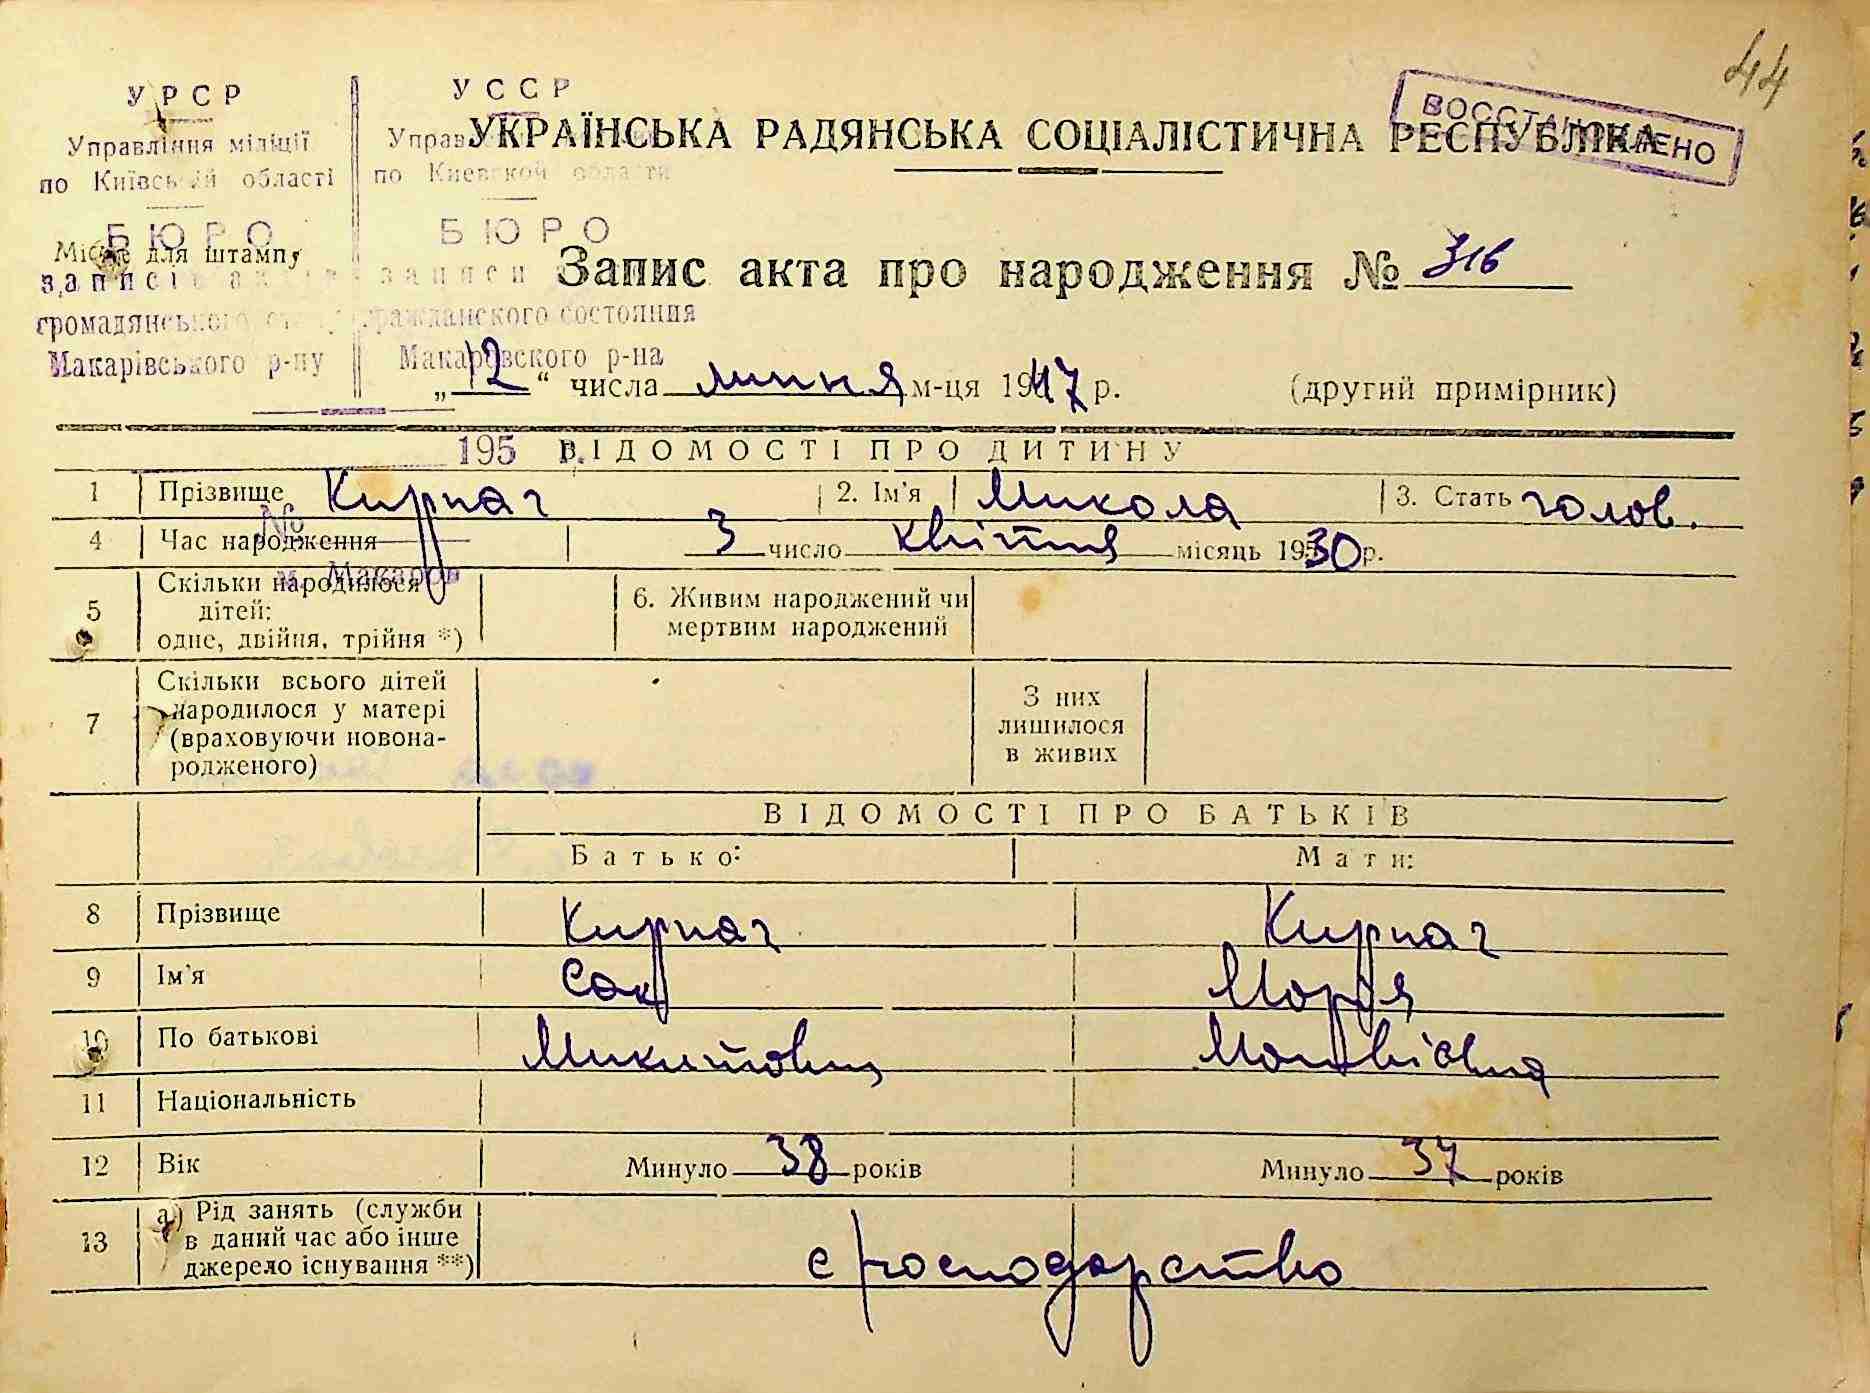 44
ВОССТАНОВЛЕНО
УРСР
УССР
УКРАЇНСЬКА РАДЯНСЬКА СОЦІАЛІСТИЧНА РЕСПУБЛІКА
Управління міліції
по Київській області
по Киевской области
БЮРО
БЮРО
Місце для штампу
записів актів
записи
Запис акта про народження № 316
громадянського
гражданского состояния
Макарівського р-ну
Макаровского р-на
„12“ числа липня м-ця 1947 р. (другий примірник)
195 р.
ВІДОМОСТІ ПРО ДИТИНУ
1 Прізвище Кирпач 2. Ім'я Микола 3. Стать чолов.
№
4 Час народження 3 число квітня місяць 1930 р.
м. Макаров
5 Скільки народилося дітей: одне, двійня, трійня *) 6. Живим народжений чи мертвим народжений
7 Скільки всього дітей народилося у матері (враховуючи новонародженого) З них лишилося в живих
ВІДОМОСТІ ПРО БАТЬКІВ
Батько: Мати:
8 Прізвище Кирпач Кирпач
9 Ім'я Сак Марія
10 По батькові Микитович Матвієвна
11 Національність
12 Вік Минуло 38 років Минуло 37 років
13 а) Рід занять (служби в даний час або інше джерело існування **) с/господарство